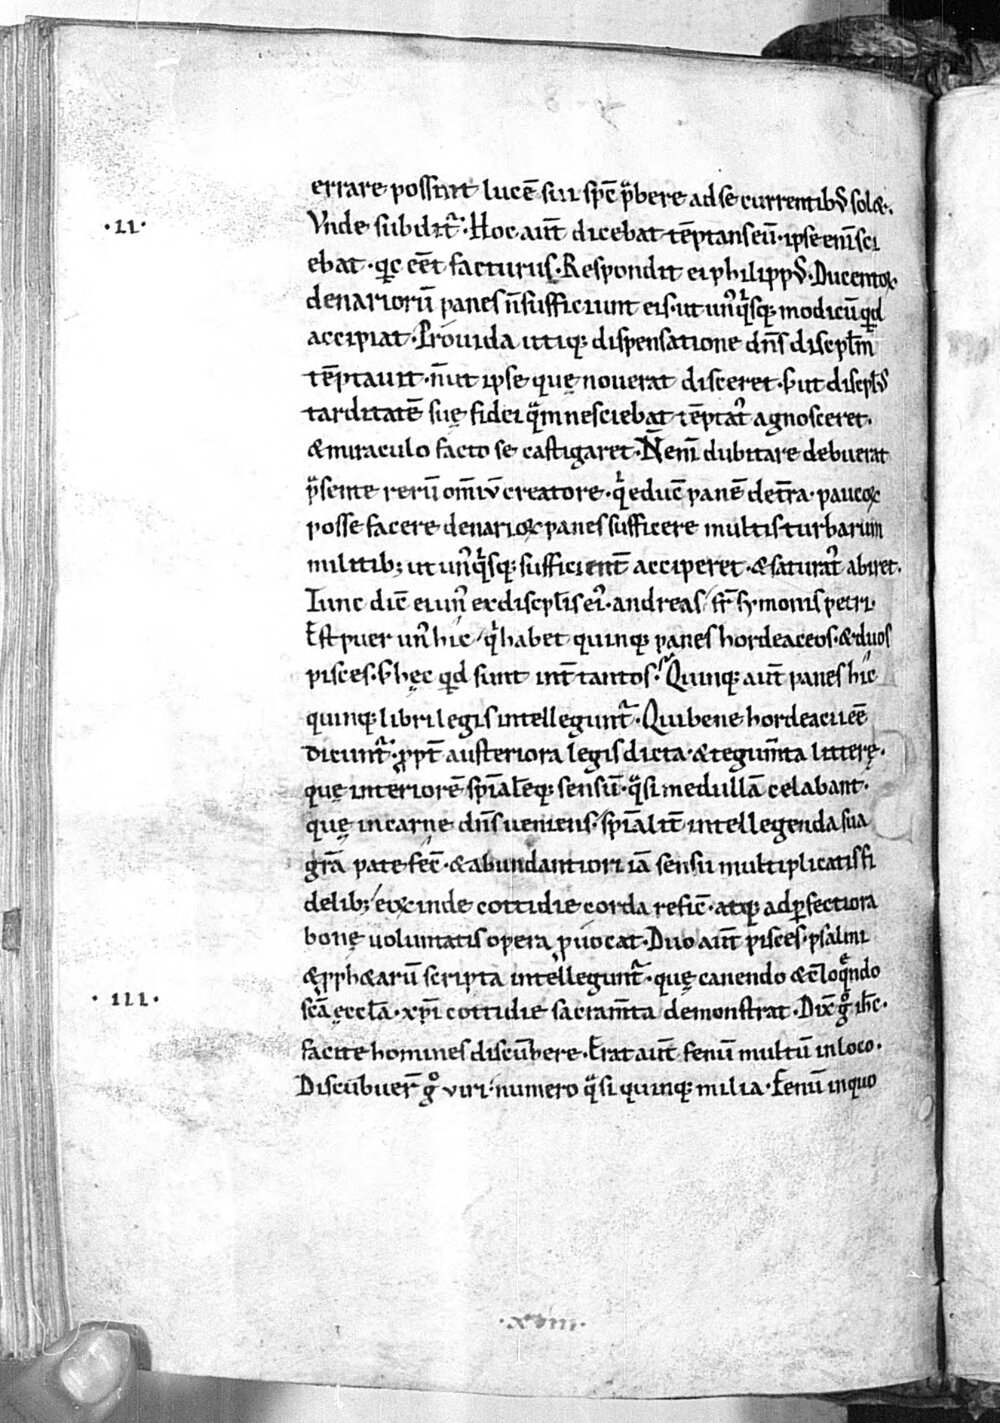 errare possint lucē sui spē p̄bere ad se currentib᷒ solet.
·II·
Vnde subdit᷑. Hoc aut̄ dicebat tēptans eū. ipse enī sci
ebat. q̇c eēt facturus. Respondit ei philipp᷒. Ducentoꝝ
denariorū panes n̄ sufficiunt eis. ut un᷒ q̇sq; modicū qd
accipiat. Prouida utiq; dispensatione dn̄s discipl̄m
tēptauit. n̄ ut ipse quę nouerat disceret. s; ut discipl̄s
tarditatē suę fidei quā nesciebat tēptat᷒ agnosceret.
& miraculo facto se castigaret. N̄ enī dubitare debuerat
p̄sente rerū om̄iū creatore. q̇ educ̄ panē de tr̄a. paucoꝝ
posse facere denarioꝝ panes sufficere multis turbarum
militib; ut un᷒ q̇sq; sufficient̄ acciperet. & saturat᷒ abiret.
Tunc dic̄ ei un᷒ ex discipl̄is ei᷒. andreas fr̄ symonis petri.
Est puer un᷒ hic q̇ habet quinq; panes hordeaceos. & duos
pisces. s; hęc qd sunt int̄ tantos? Quinq; aut̄ panes hii
quinq; libri legis intellegunt᷑. Qui bene hordeacii eē
dicunt᷑. ꝓpt̄ austeriora legis dicta. & tegum̄ta litterę.
quę interiorē spīalēq; sensū. q̇si medullā celabant.
quę in carne dn̄s ueniens. spīalit̄ intellegenda sua
gr̄a patefec̄. & abundantiori iā sensu multiplicatis fi
delib; eoꝝ inde cottidie corda refic̄. atq; ad ꝑfectiora
bonę uoluntatis opera ꝓuocat. Duo aut̄ pisces. psalmi
& ꝓph&arū scripta intellegunt᷑. quę canendo & c̄loq̄ndo
·III·
sc̄a ęccl̄a. xp̄i cottidie sacram̄ta demonstrat. Dix̄ g̊ ih̄c.
facite homines discūbere. Erat aut̄ fenū multū in loco.
Discūbuer̄ g̊ uiri. numero q̇si quinq; milia. Fenū in quo
·xviii·